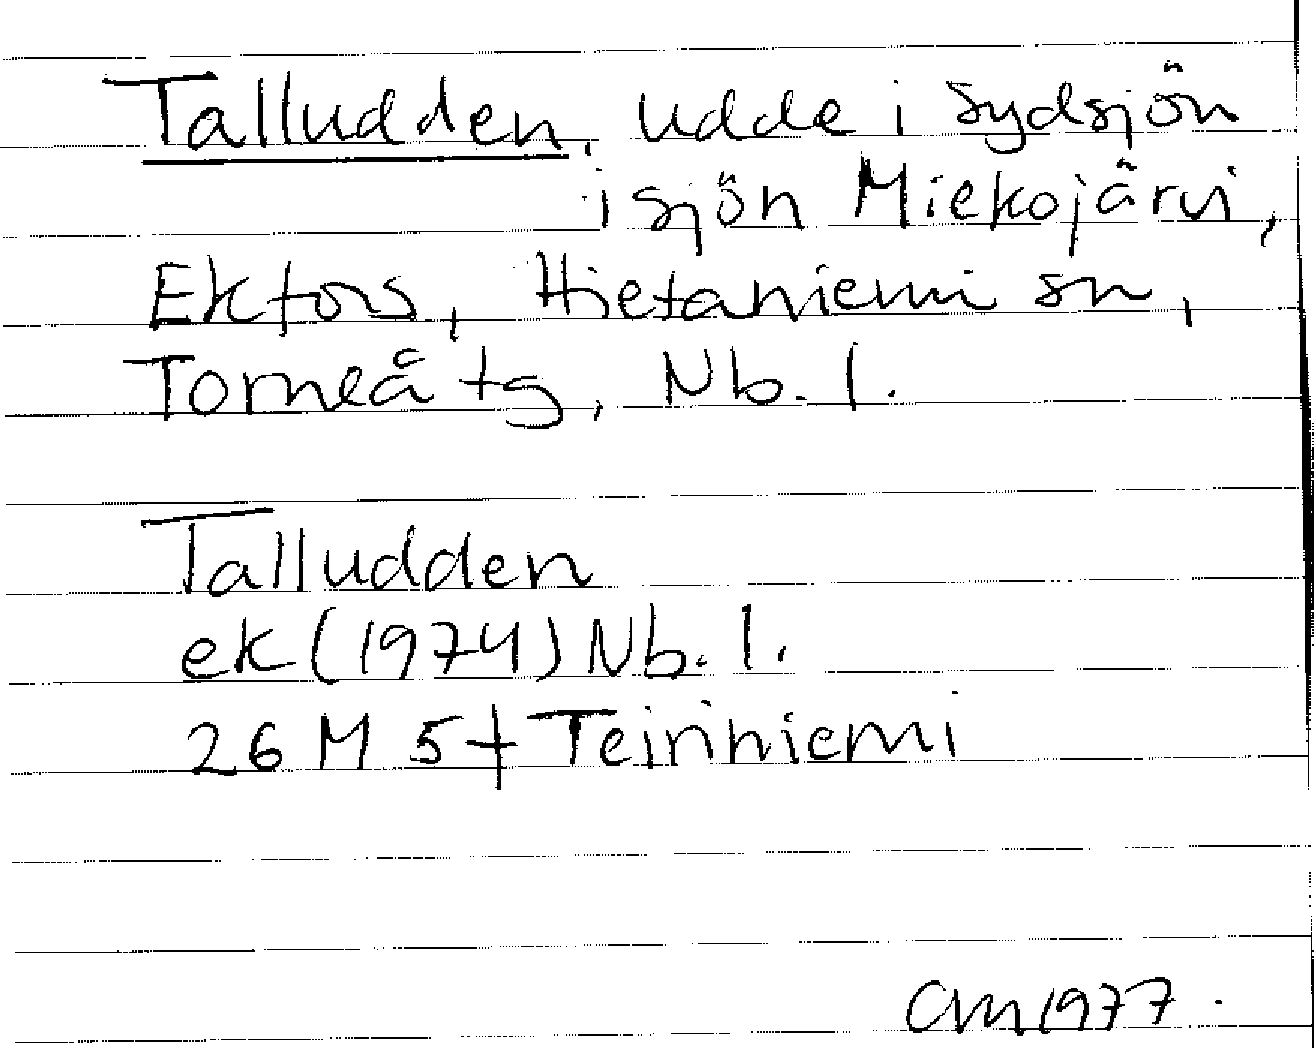 Talludden, udde i Sydsjön
i sjön Miekojärvi,
Ekfors, Hietaniemi sn,
Torneå tg, Nb. l.
Talludden
ek (1974) Nb. l.
26 M 5f Teinniemi
CM 1977.